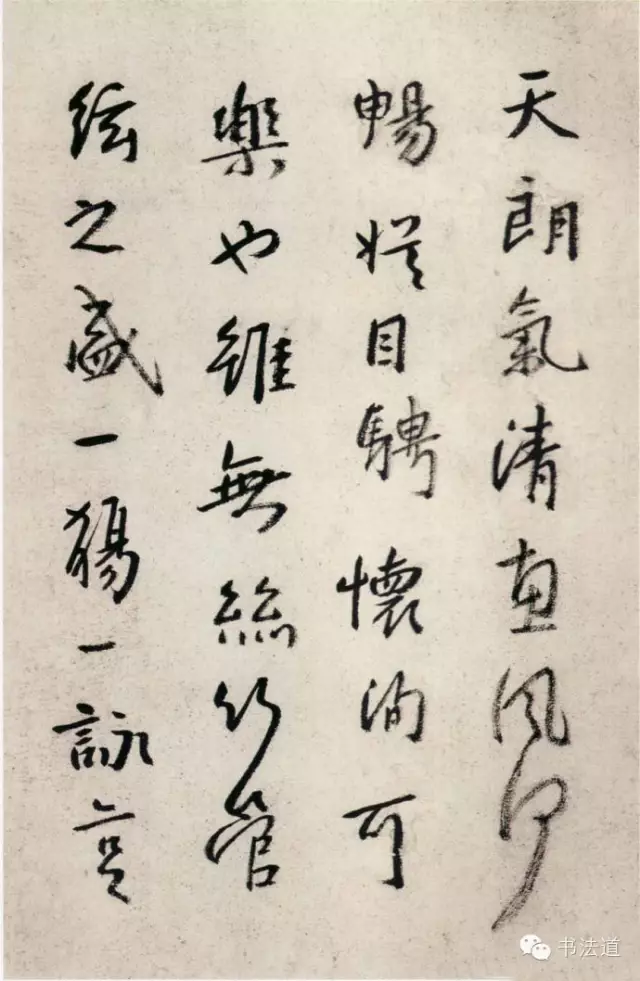 天朗氣清惠風和
暢娛目騁懷洵可
樂也雖無絲竹管
絃之盛一觴一詠
书法道